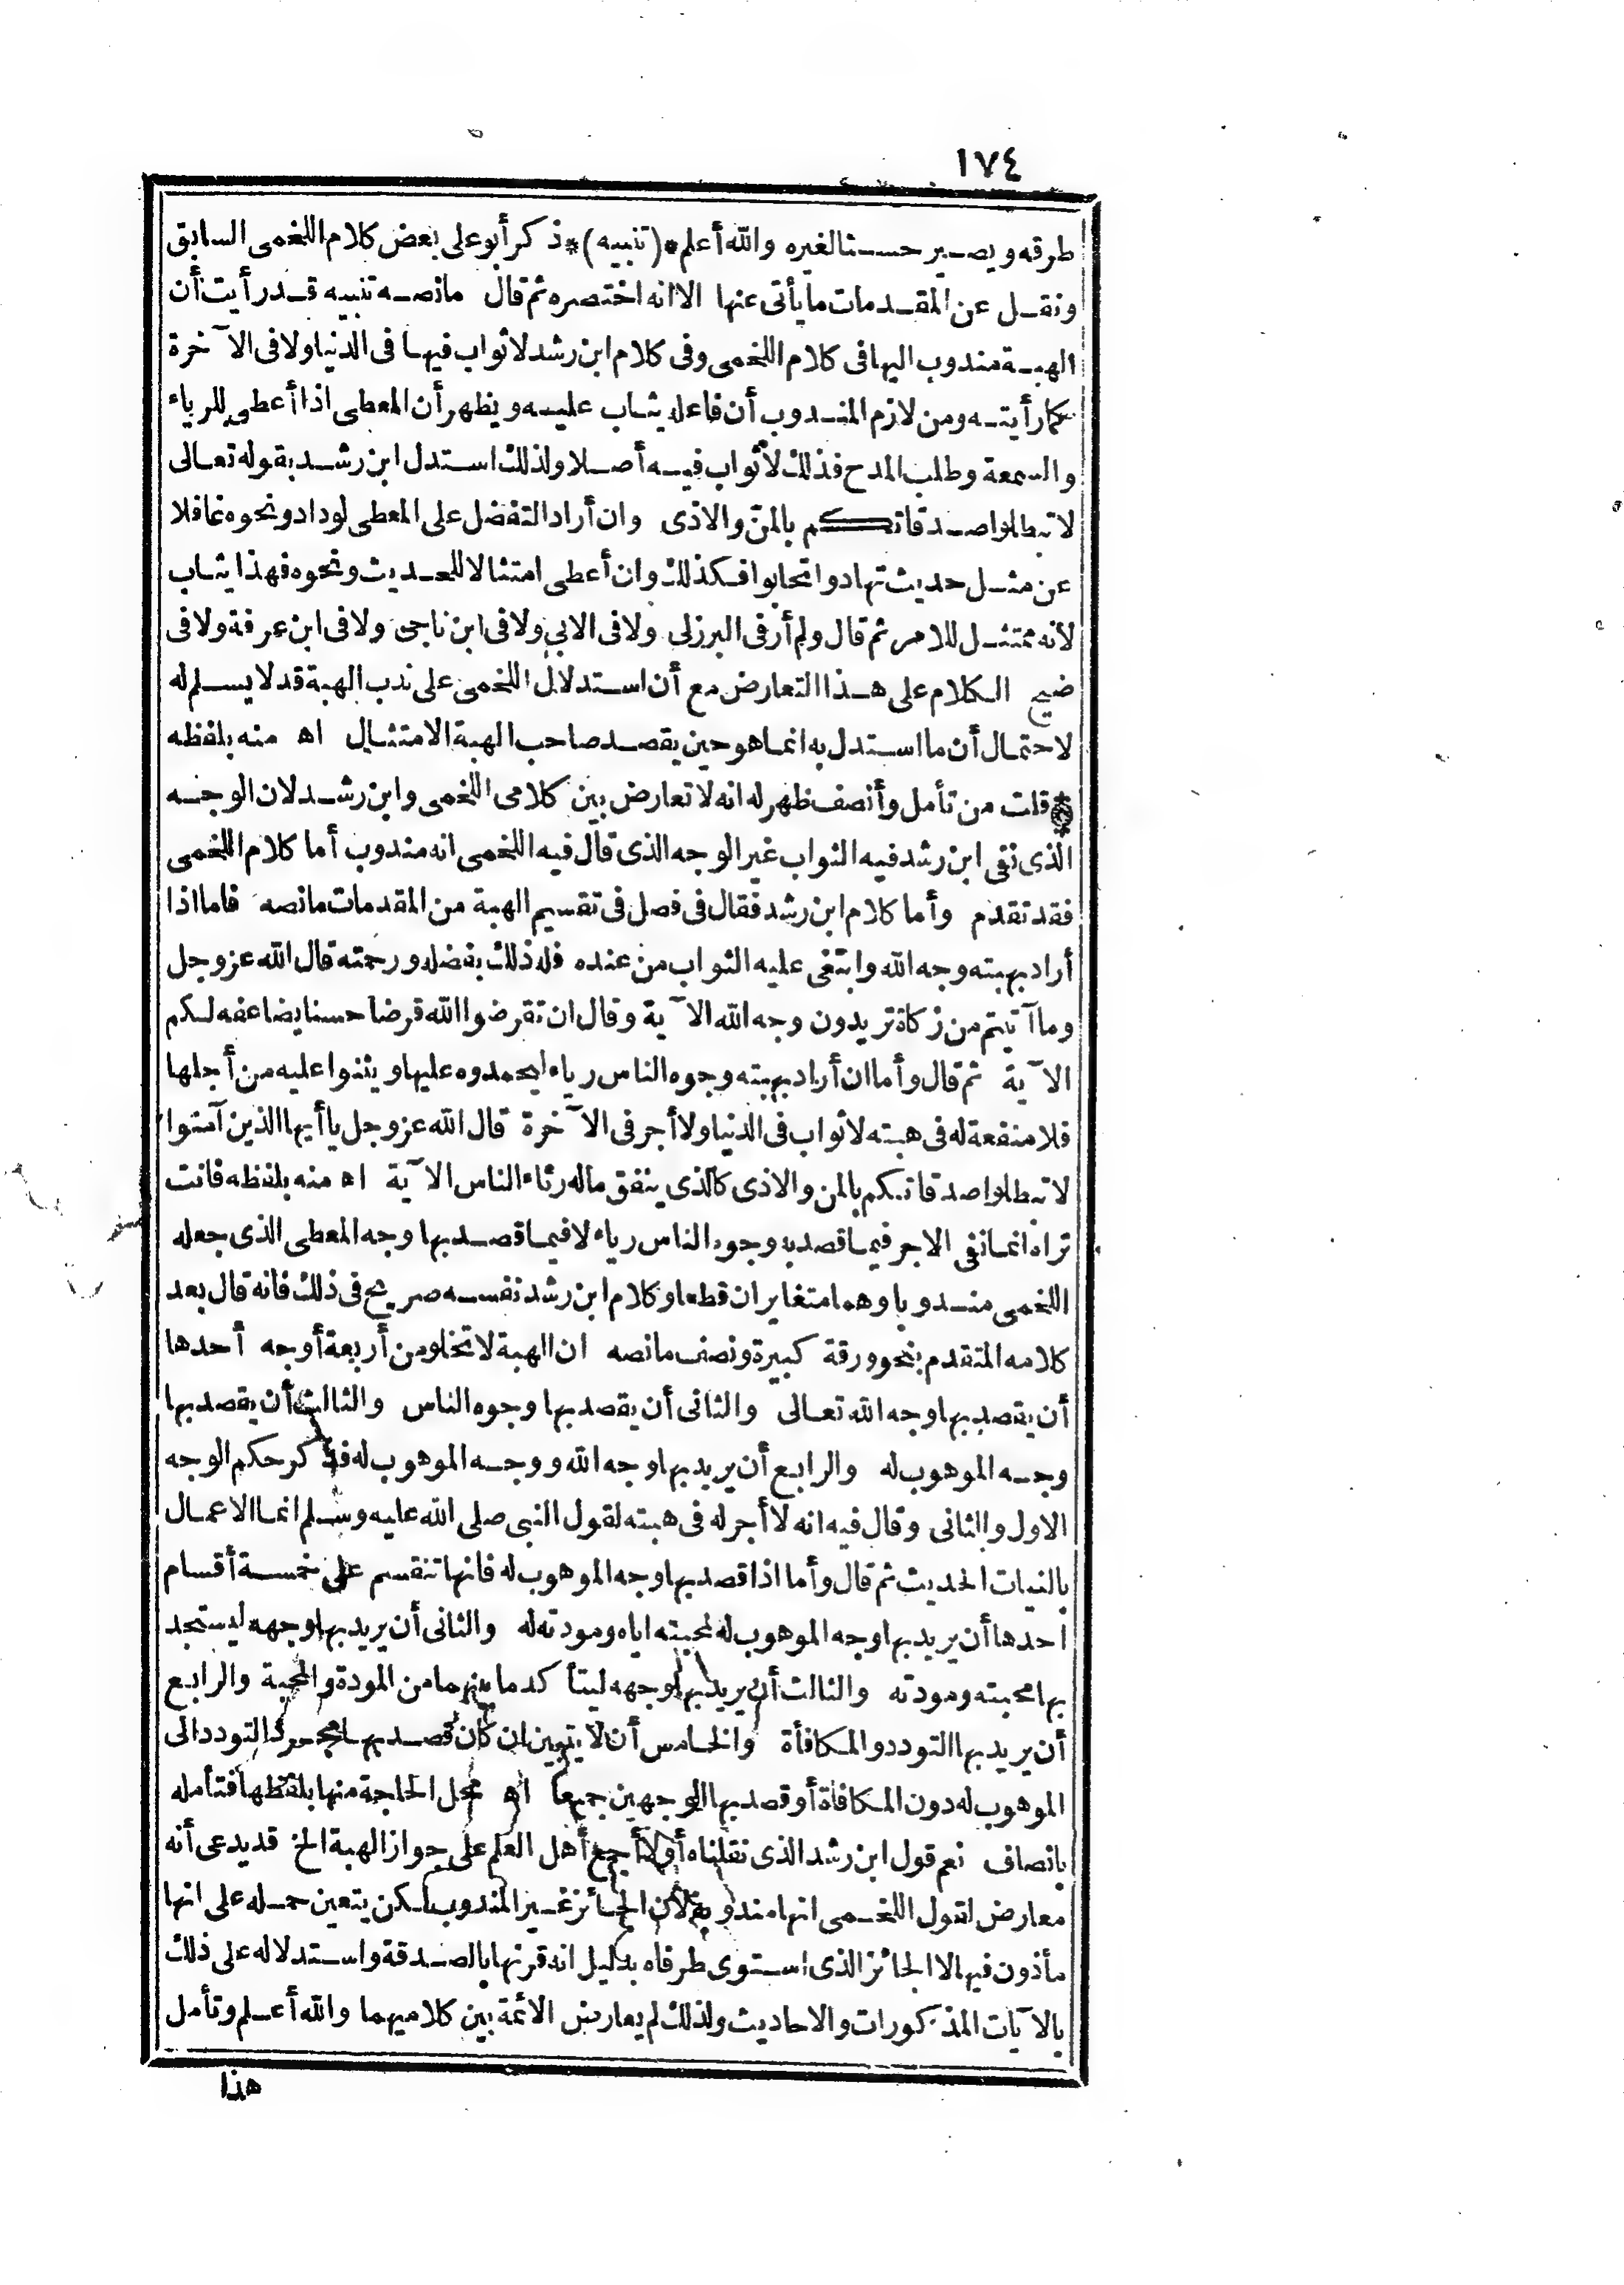 ١٧٤
طرقه ويصير حسنا لغيره والله أعلم *(تنبيه)* ذكر أبو على بعض كلام اللخمى السابق
ونقل عن المقدمات ما يأتى عنها الا انه اختصره ثم قال مانصه تنبيه قد رأيت أن
الهبة مندوب اليها فى كلام اللخمى وفى كلام ابن رشد لاثواب فيها فى الدنيا ولا فى الآخرة
كما رأيته ومن لازم المندوب أن فاعله يثاب عليه ويظهر أن المعطى اذا أعطى للرياء
والسمعة وطلب المدح فذلك لأثواب فيه أصلا ولذلك استدل ابن رشد بقوله تعالى
لا تبطلوا صدقاتكم بالمنّ والاذى وان أراد التفضل على المعطى لوداد ونحوه غافلا
عن مثل حديث تهادوا تحابوا فكذلك وان أعطى امتثالا للحديث ونحوه فهذا يثاب
لأنه ممتثل للامر ثم قال ولم أر فى البرزلى ولا فى الابى ولا فى ابن ناجى ولا فى ابن عرفة ولا فى
ضيح الكلام على هذا التعارض مع أن استدلال اللخمى على ندب الهبة قد لا يسلم له
لاحتمال أن ما استدل به انما هو حين يقصد صاحب الهبة الامتثال اه منه بلفظه
قلت من تأمل وأنصف ظهر له انه لا تعارض بين كلامى اللخمى وابن رشد لان الوجه
الذى نفى ابن رشد فيه الثواب غير الوجه الذى قال فيه اللخمى انه مندوب أما كلام اللخمى
فقد تقدم وأما كلام ابن رشد فقال فى فصل فى تقسيم الهبة من المقدمات مانصه فاما اذا
أراد بهبته وجه الله وابتغى عليه الثواب من عنده فله ذلك بفضله ورحمته قال الله عز وجل
وما آتيتم من زكاة تريدون وجه الله الآية وقال ان تقرضوا الله قرضا حسنا يضاعفه لكم
الآية ثم قال وأما ان أراد بهبته وجوه الناس رياء ليحمدوه عليها ويثنوا عليه من أجلها
فلا منفعة له فى هبته لا ثواب فى الدنيا ولا أجر فى الآخرة قال الله عز وجل يا أيها الذين آمنوا
لا تبطلوا صدقاتكم بالمن والاذى كالذى ينفق ماله رئاء الناس الآية اه منه بلفظه فانت
تراه انما نفى الاجر فيما قصد به وجوه الناس رياء لا فيما قصد بها وجه المعطى الذى جعله
اللخمى مندوبا وهما متغايران قطعا وكلام ابن رشد نفسه صريح فى ذلك فانه قال بعد
كلامه المتقدم بنحو ورقة كبيرة ونصف مانصه ان الهبة لا تخلو من أربعة أوجه أحدها
أن يقصد بها وجه الله تعالى والثانى أن يقصد بها وجوه الناس والثالث أن يقصد بها
وجه الموهوب له والرابع أن يريد بها وجه الله ووجه الموهوب له فذكر حكم الوجه
الاول والثانى وقال فيه انه لا أجر له فى هبته لقول النبى صلى الله عليه وسلم انما الاعمال
بالنيات الحديث ثم قال وأما اذا قصد بها وجه الموهوب له فانها تنقسم على خمسة أقسام
احدها أن يريد بها وجه الموهوب له لمحبته اياه ومودته له والثانى أن يريد بها وجهه ليستجد
بها محبته ومودته والثالث أن يريد بها وجهه ليتأكد ما بينهما من المودة والمحبة والرابع
أن يريد بها التودد والمكافأة والخامس أن لا يتبين ان كان قصد بها مجرد التودد الى
الموهوب له دون المكافأة أو قصد بها الوجهين جميعا اه محل الحاجة منها بلفظها فتأمله
بانصاف نعم قول ابن رشد الذى نقلناه أولا أجمع أهل العلم على جواز الهبة الخ قد يدعى أنه
معارض لقول اللخمى انها مندوبة لأن الجائز غير المندوب لكن يتعين حمله على انها
مأذون فيها لا الجائز الذى استوى طرفاه بدليل انه قرنها بالصدقة واستدلاله على ذلك
بالآيات المذكورات والاحاديث ولذلك لم يعارض الائمة بين كلاميهما والله أعلم وتأمل
هذا